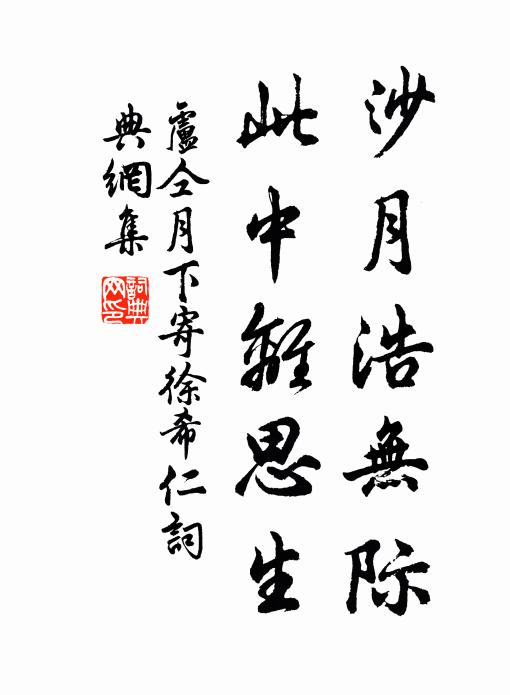 沙月浩無际
此中離思生
盧仝月下寄徐希仁詞
典網集
詞典网印